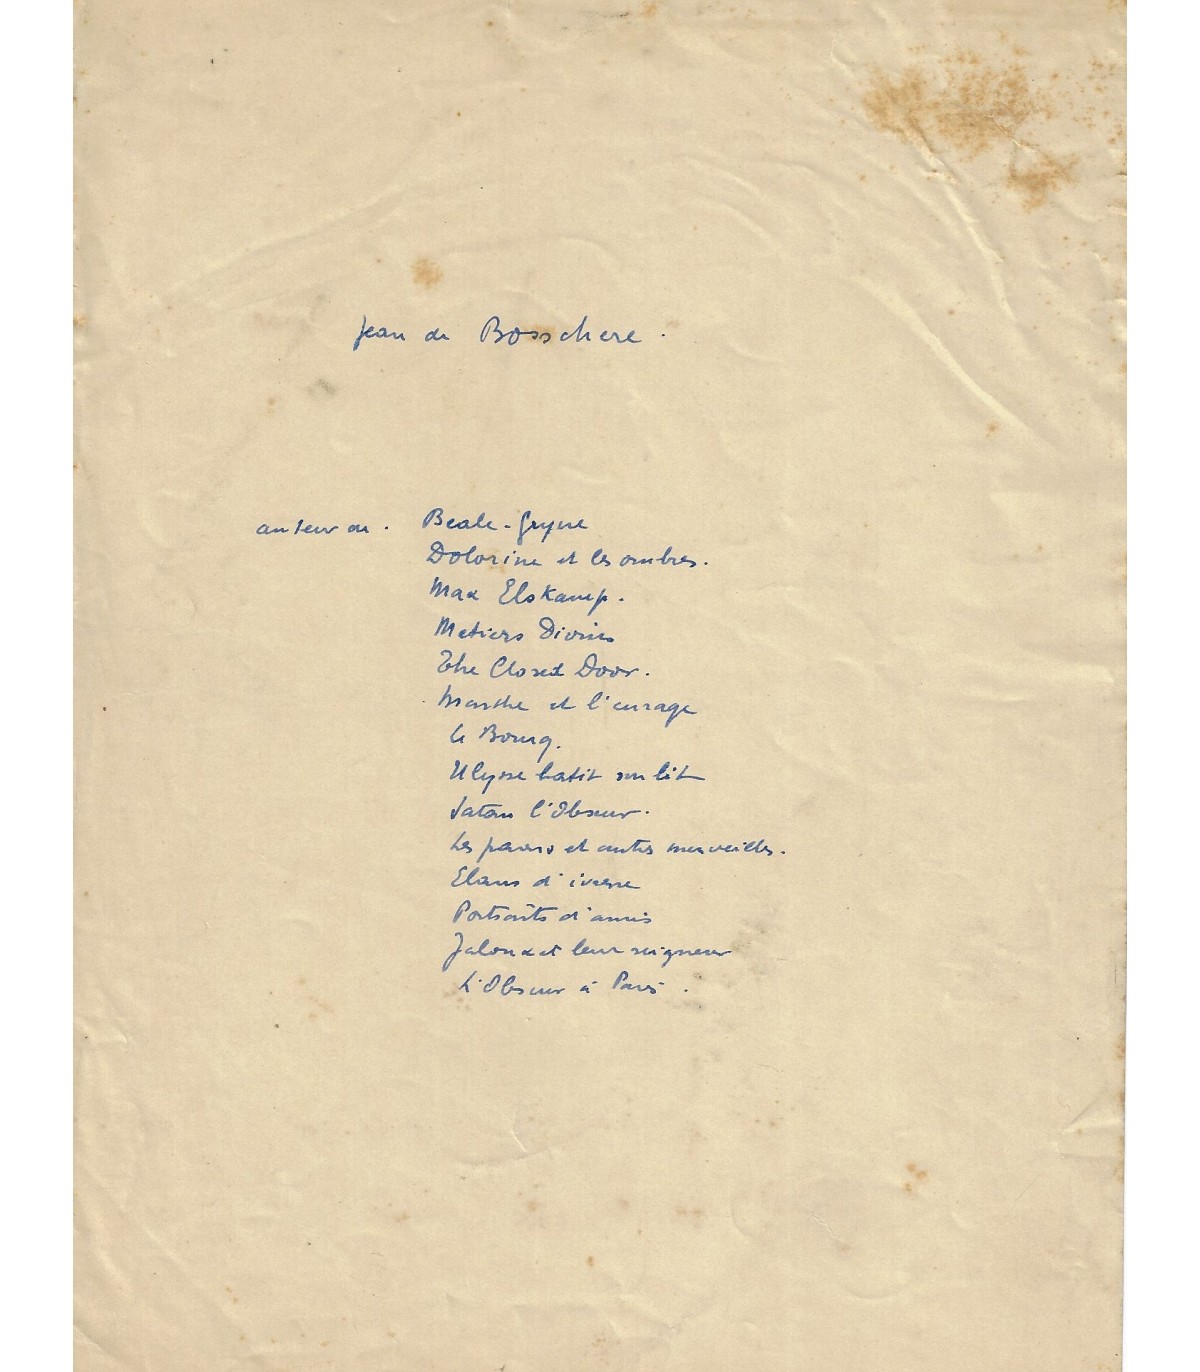 Jean de Bosschere.
auteur de. Beale-Gryne
Dolorine et les ombres.
Max Elskamp.
Metiers Divins
The Closed Door.
Marthe et l'enragé
Le Bourg.
Ulysse batit son lit
Satan l'Obscur.
Les paons et autres merveilles.
Elans d'ivresse
Portraits d'amis
Jaloux et leur seigneur
L'Obscur à Paris.